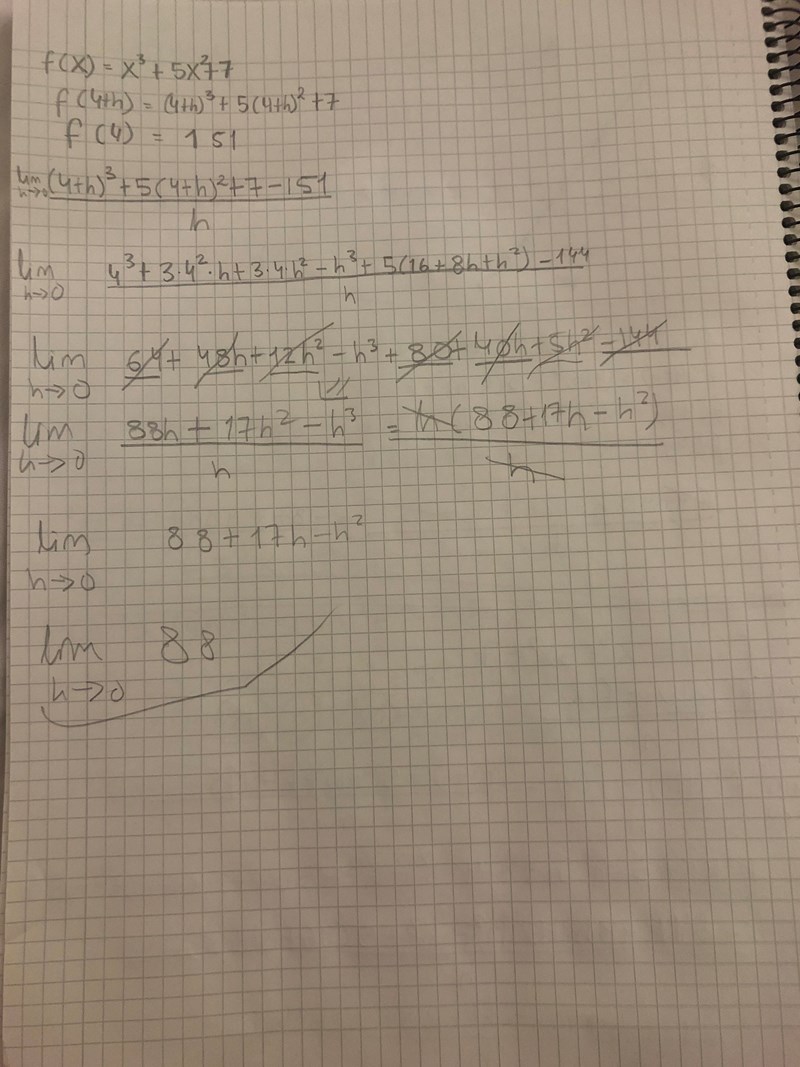 f(x) = x³ + 5x²+7
f(4+h) = (4+h)³ + 5(4+h)² + 7
f(4) = 151
lim h→0 (4+h)³ + 5(4+h)² + 7 - 151 / h
lim h→0 4³ + 3·4²·h + 3·4·h² - h³ + 5(16 + 8h + h²) - 144 / h
lim h→0 64 + 48h + 12h² - h³ + 80 + 40h + 5h² - 144
lim h→0 88h + 17h² - h³ / h = h(88+17h-h²) / h
lim h→0 88 + 17h - h²
lim h→0 88